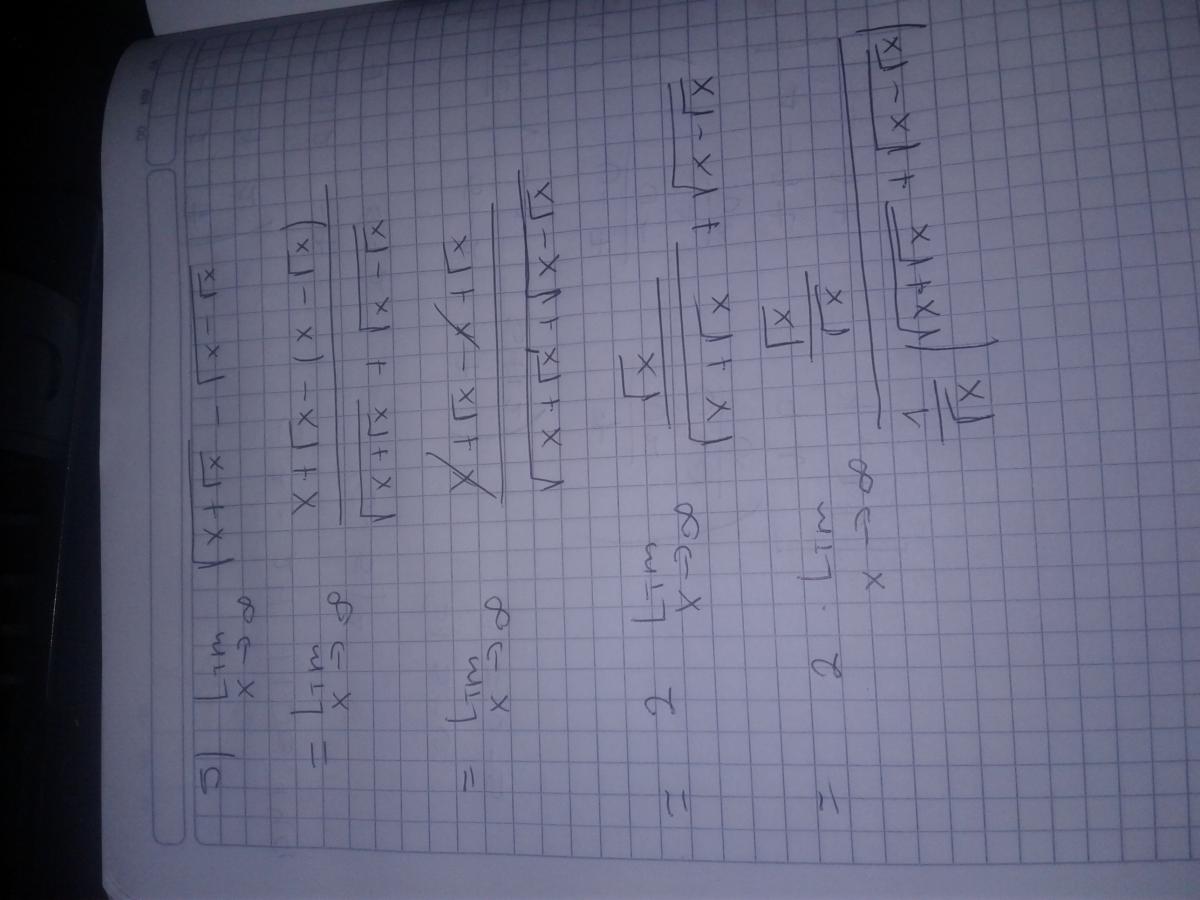 5) Lim x→∞ √(x+√x) - √(x-√x)
= Lim x→∞ (x+√x-(x-√x)) / (√(x+√x) + √(x-√x))
= Lim x→∞ (x+√x-x+√x) / (√(x+√x) + √(x-√x))
= 2 Lim x→∞ √x / (√(x+√x) + √(x-√x))
= 2 . Lim x→∞ (√x/√x) / (1/√x (√(x+√x) + √(x-√x)))